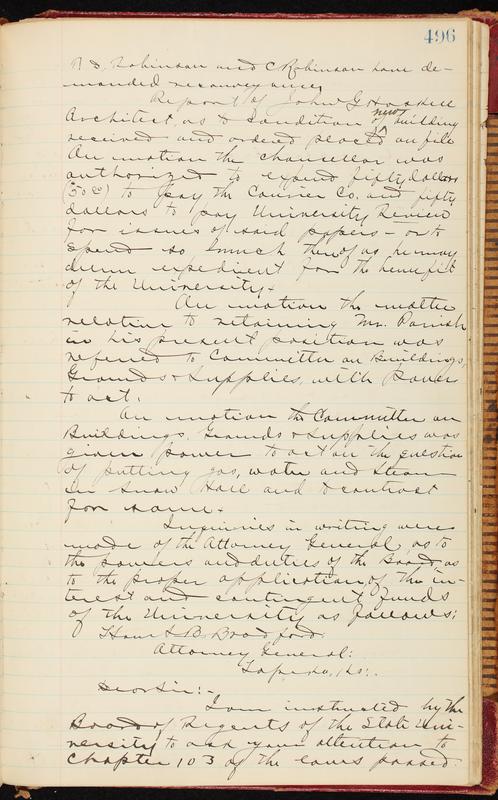 496
N. D. Robinson and C Robinson have de-
manded reconveyance,
Report of John G Haskell
Architect, as to Condition of new building
received and ordered placed on file
On motion the chancellor was
authorized to expend fifty dollars
to pay the Courier Co. and fifty
dollars to pay University Review
for issues of said papers - or to
spend so much thereof as he may
deem expedient for the benefit
of the University.
On motion the matter
relative to retaining Mr. Parish
in his present position was
referred to Committee on Buildings,
Grounds & Supplies, with power
to act.
On motion the Committee on
Buildings, Grounds & Supplies was
given power to act on the question
of putting gas, water and steam
in Snow Hall and to contract
for same.
Inquiries in writing were
made of the Attorney General, as to
the powers and duties of the Board, as
to the proper application of the in-
terest and contingent funds
of the University as follows:
Hon. S. B. Bradford.
Attorney General:
Topeka, Ks.
Dear Sir:-
I am instructed by the
Board of Regents of the State Uni-
versity to ask your attention to
Chapter 103 of the laws passed